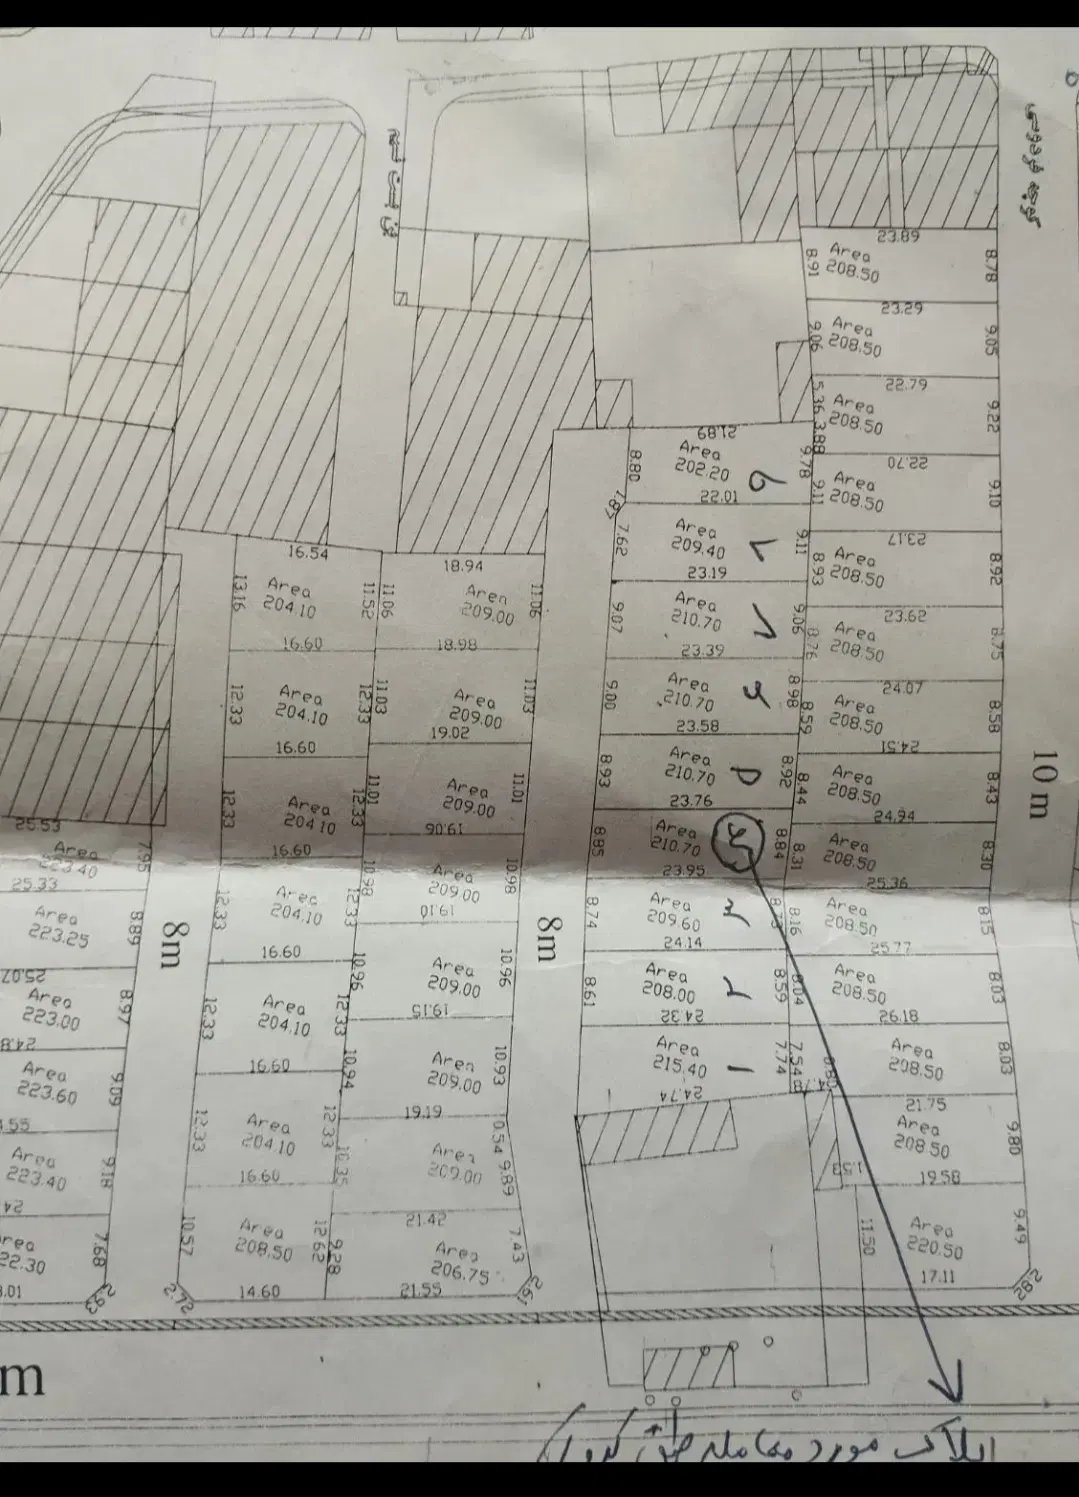 کوچه فردوسی
بن بست نسیم
23.89
Area
208.50
8.91
8.78
23.29
Area
208.50
9.06
9.05
22.79
Area
208.50
5.36
3.88
9.22
22.70
Area
208.50
9.11
9.10
23.17
Area
208.50
8.93
8.92
23.62
Area
208.50
8.76
8.75
24.07
Area
208.50
8.59
8.58
24.51
Area
208.50
8.44
8.43
24.94
Area
208.50
8.31
8.30
25.36
Area
208.50
8.16
8.15
25.77
Area
208.50
8.04
8.03
26.18
Area
208.50
7.54
8.03
21.75
Area
208.50
9.80
1.53
19.58
Area
220.50
11.50
9.49
17.11
2.82
10 m
21.89
Area
202.20
8.80
9.78
22.01
1.87
Area
209.40
7.62
9.11
23.19
Area
210.70
9.07
9.06
23.39
Area
210.70
9.00
8.98
23.58
Area
210.70
8.93
8.92
23.76
Area
210.70
8.85
8.84
23.95
Area
209.60
8.74
24.14
Area
208.00
8.61
8.59
24.32
Area
215.40
7.74
24.74
8m
18.94
Area
209.00
11.06
11.06
18.98
Area
209.00
11.03
11.03
19.02
Area
209.00
11.01
11.01
19.06
Area
209.00
10.98
10.98
19.10
Area
209.00
10.96
10.96
19.15
Area
209.00
10.94
10.93
19.19
Area
209.00
10.35
10.54
9.89
21.42
Area
206.75
9.28
7.43
21.55
16.54
Area
204.10
13.16
11.52
16.60
Area
204.10
12.33
12.33
16.60
Area
204.10
12.33
12.33
16.60
Area
204.10
12.33
12.33
16.60
Area
204.10
12.33
12.33
16.60
Area
204.10
12.33
12.33
16.60
Area
208.50
10.57
12.62
14.60
2.72
8m
25.53
Area
223.40
7.95
25.33
Area
223.25
8.89
25.07
Area
223.00
8.97
Area
223.60
9.09
Area
223.40
9.18
7.68
m
پلاک مورد معامله